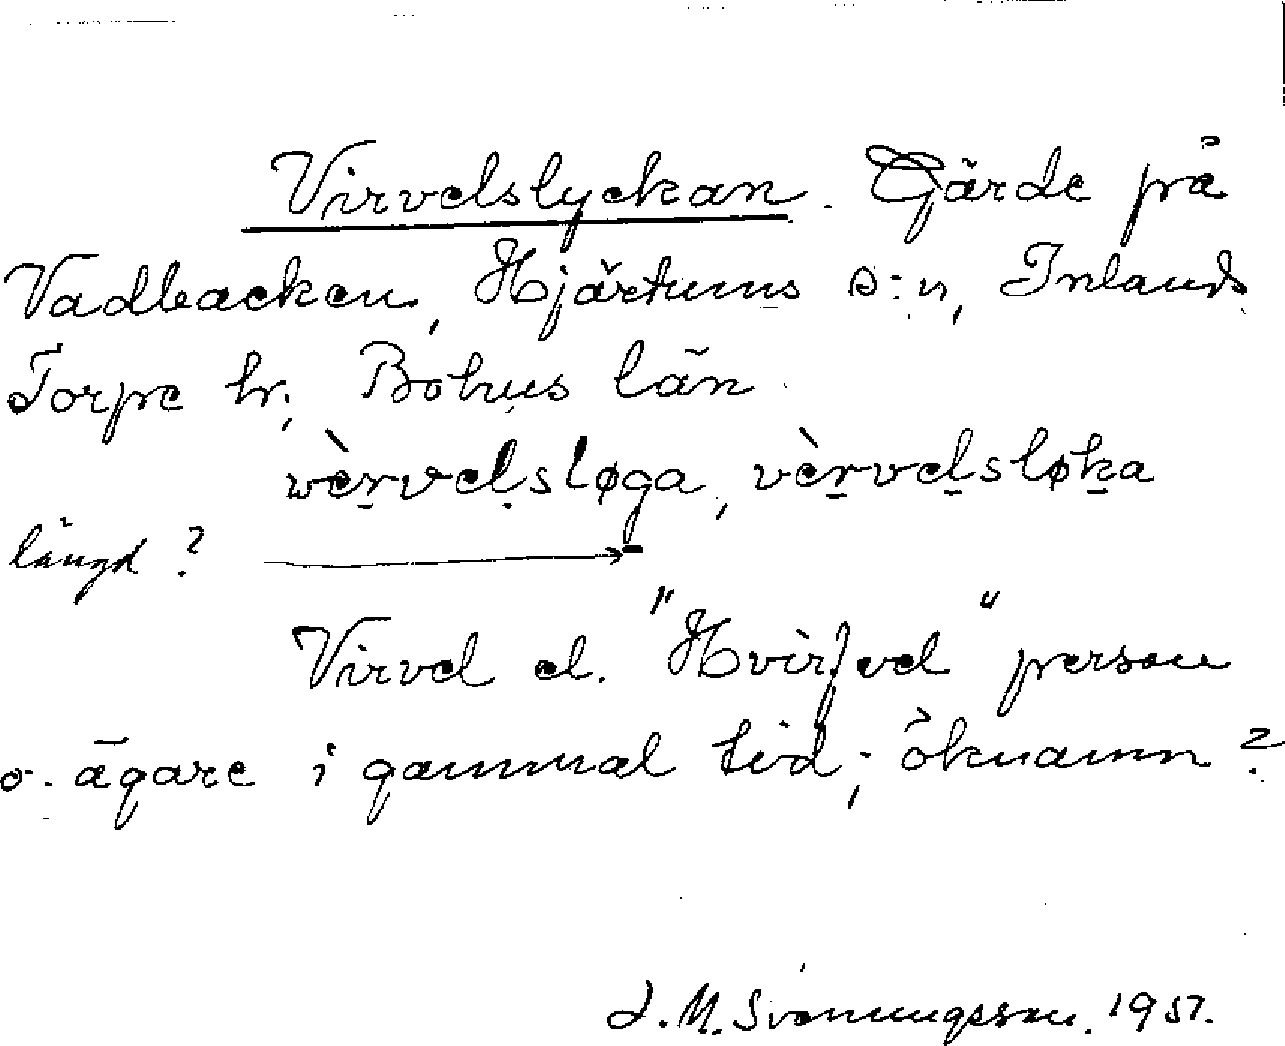 Virvelslyckan. Gärde på
Vadbacken, Hjärtums s:n, Inlands
Torpe hr, Bohus län
vèrvelsløga, vèrvelsløka
längd ?
Virvel el. "Hvirfvel" person
o. ägare i gammal tid; öknamn?
J. M. Svenningsson. 1957.